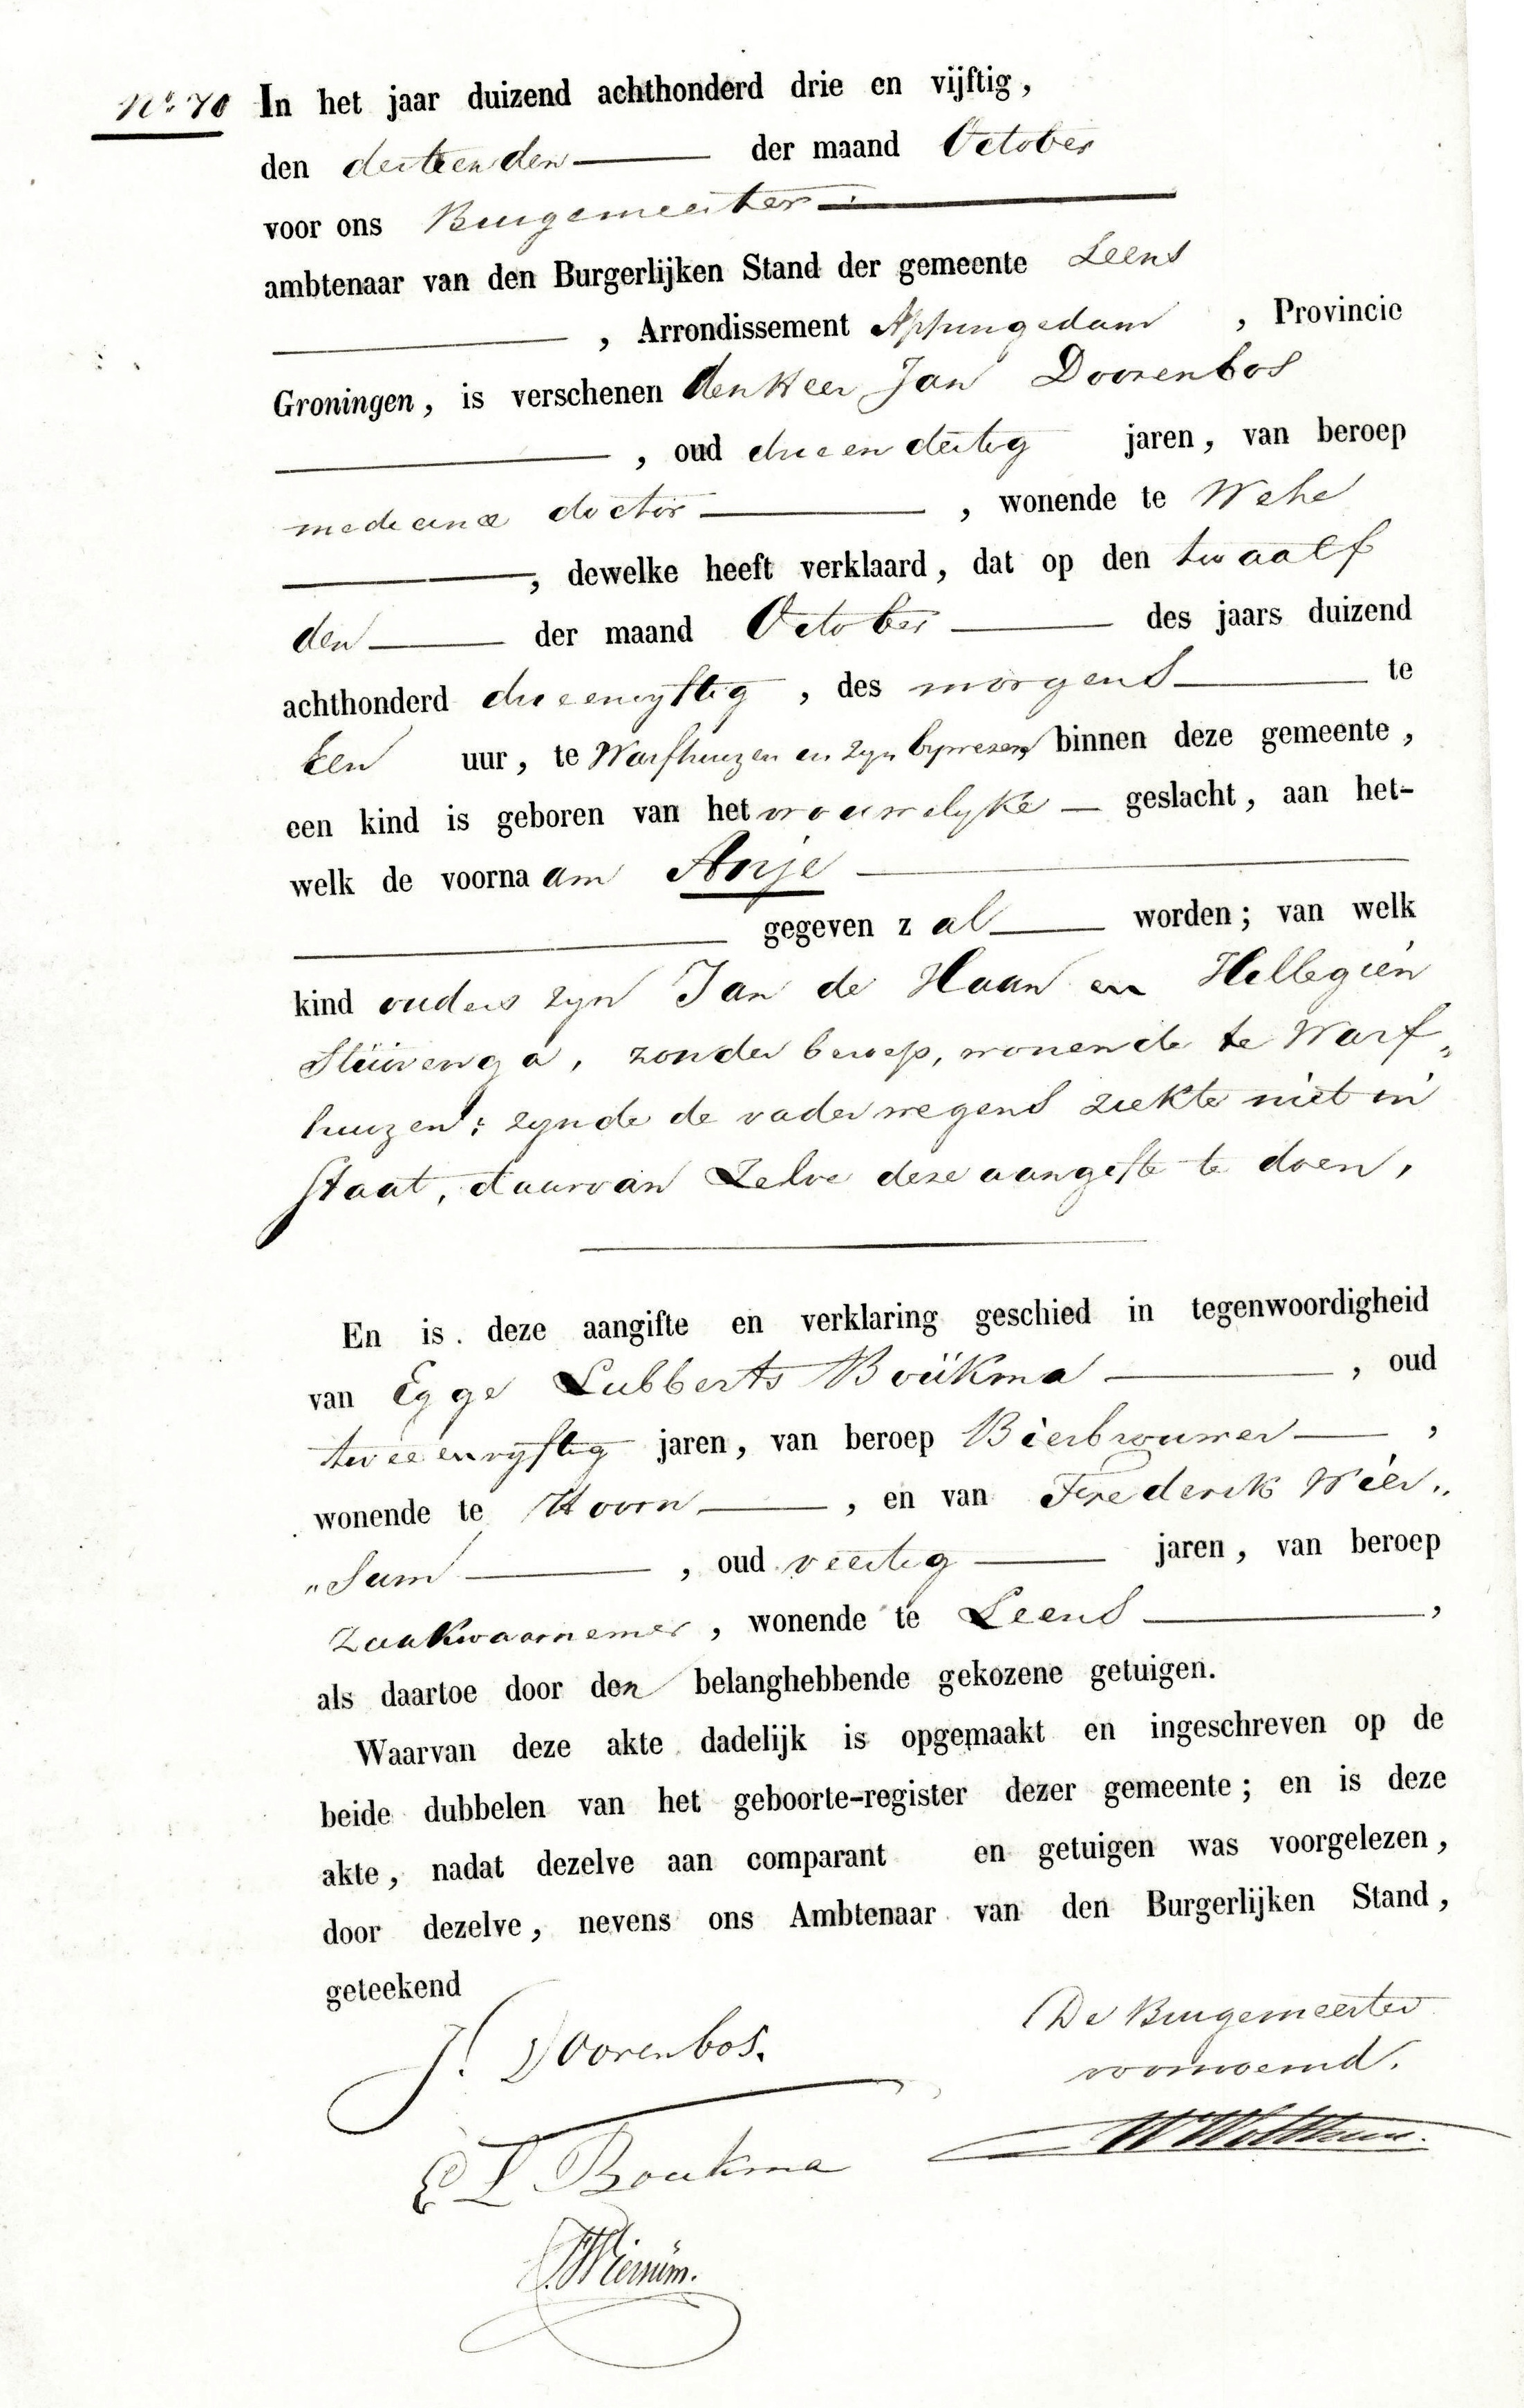 No. 70 In het jaar duizend achthonderd drie en vijftig,
den dertienden der maand October
voor ons Burgemeester
ambtenaar van den Burgerlijken Stand der gemeente Leens
, Arrondissement Appingedam , Provincie
Groningen, is verschenen den Heer Jan Doorenbos
, oud drie en dertig jaren, van beroep
medicinæ doctor , wonende te Wehe
, dewelke heeft verklaard, dat op den twaalf
den der maand October des jaars duizend
achthonderd drieenvyftig , des morgens te
een uur, te Warfhuizen en zyn bywezen binnen deze gemeente,
een kind is geboren van het vrouwelyke geslacht, aan het-
welk de voornaam Anje
gegeven zal worden; van welk
kind ouders zyn Jan de Haan en Hillegien
Stuivenga, zonder beroep, wonende te Warf„
huizen; zynde de vader wegens ziekte niet in
staat, daarvan Zelve deze aangifte te doen,
En is deze aangifte en verklaring geschied in tegenwoordigheid
van Egge Lubberts Boükma , oud
twee envyftig jaren, van beroep Bierbrouwer ,
wonende te Hoorn , en van Frederik Wier„
„sum , oud veertig jaren, van beroep
Zaakwaarnemer, wonende te Leens ,
als daartoe door den belanghebbende gekozene getuigen.
Waarvan deze akte dadelijk is opgemaakt en ingeschreven op de
beide dubbelen van het geboorte-register dezer gemeente; en is deze
akte, nadat dezelve aan comparant en getuigen was voorgelezen,
door dezelve, nevens ons Ambtenaar van den Burgerlijken Stand,
geteekend
J. Doorenbos.
De Burgemeester
voornoemd.
E L Boukma
Wiersüm.